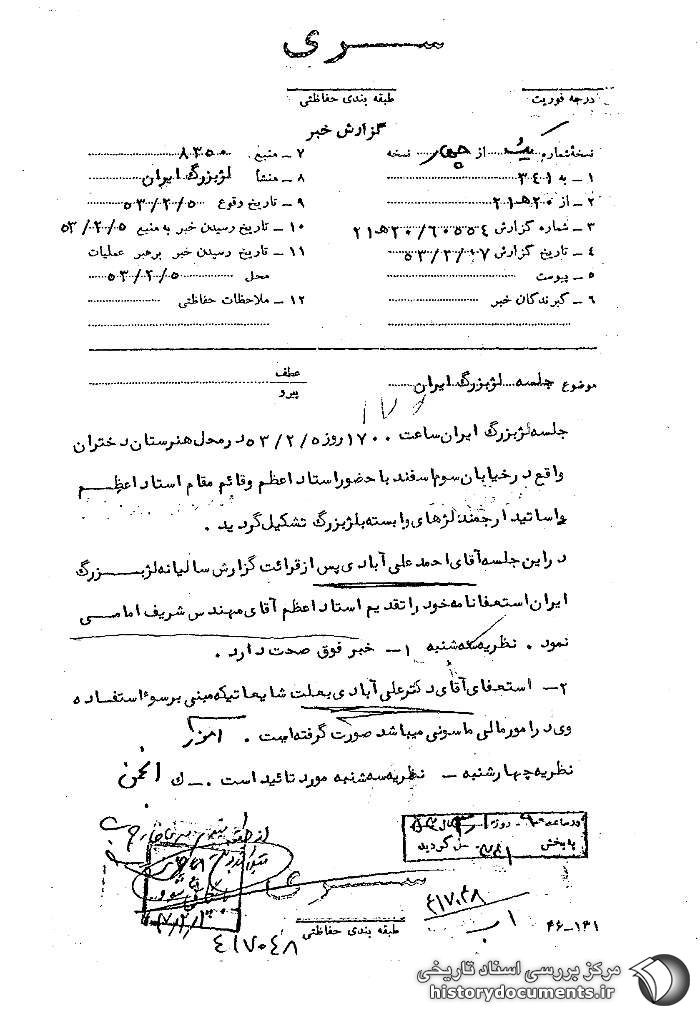 سری
درجه فوریت
طبقه بندی حفاظتی
گزارش خبر
نسخهٔ شماره یک از چهار نسخه
۱ - به ۳٤۱
۲ - از ۲۰ه۲۱
۳ - شماره گزارش ۲۰/۶۰۵۵٤ه۲۱
٤ - تاریخ گزارش ۵۳/۲/۱۷
۵ - پیوست
٦ - گیرندگان خبر
۷ - منبع ۸۳۵۰
۸ - منشأ لژ بزرگ ایران
۹ - تاریخ وقوع ۵۳/۲/۵
۱۰ - تاریخ رسیدن خبر به منبع ۵۳/۲/۵
۱۱ - تاریخ رسیدن خبر برهبر عملیات
محل ۵۳/۲/۵
۱۲ - ملاحظات حفاظتی
موضوع جلسه لژ بزرگ ایران
عطف
پیرو
جلسه لژ بزرگ ایران ساعت ۱۷۰۰ روز ۵۳/۲/۵ در محل هنرستان دختران
واقع در خیابان سوم اسفند با حضور استاد اعظم و قائم مقام استاد اعظم
و اساتید ارجمند لژهای وابسته به لژ بزرگ تشکیل گردید .
در این جلسه آقای احمد علی آبادی پس از قرائت گزارش سالیانه لژ بزرگ
ایران استعفانامه خود را تقدیم استاد اعظم آقای مهندس شریف امامی
نمود . نظریه سه شنبه ۱- خبر فوق صحت دارد .
۲- استعفای آقای دکتر علی آبادی بعلت شایعاتیکه مبنی بر سوء استفاده
وی در امور مالی ماسونی میباشد صورت گرفته است .
نظریه چهارشنبه - نظریه سه شنبه مورد تائید است . ك
انجمن
بخش
گردید
سری
طبقه بندی حفاظتی
٤۱۷۰٤۸
٤۱۷۰٤۸
۳۶-۱۳۱
مرکز بررسی اسناد تاریخی
historydocuments.ir